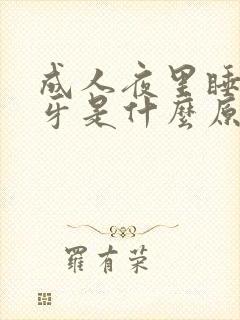 成人夜里睡
牙是什麼原
羅有荣